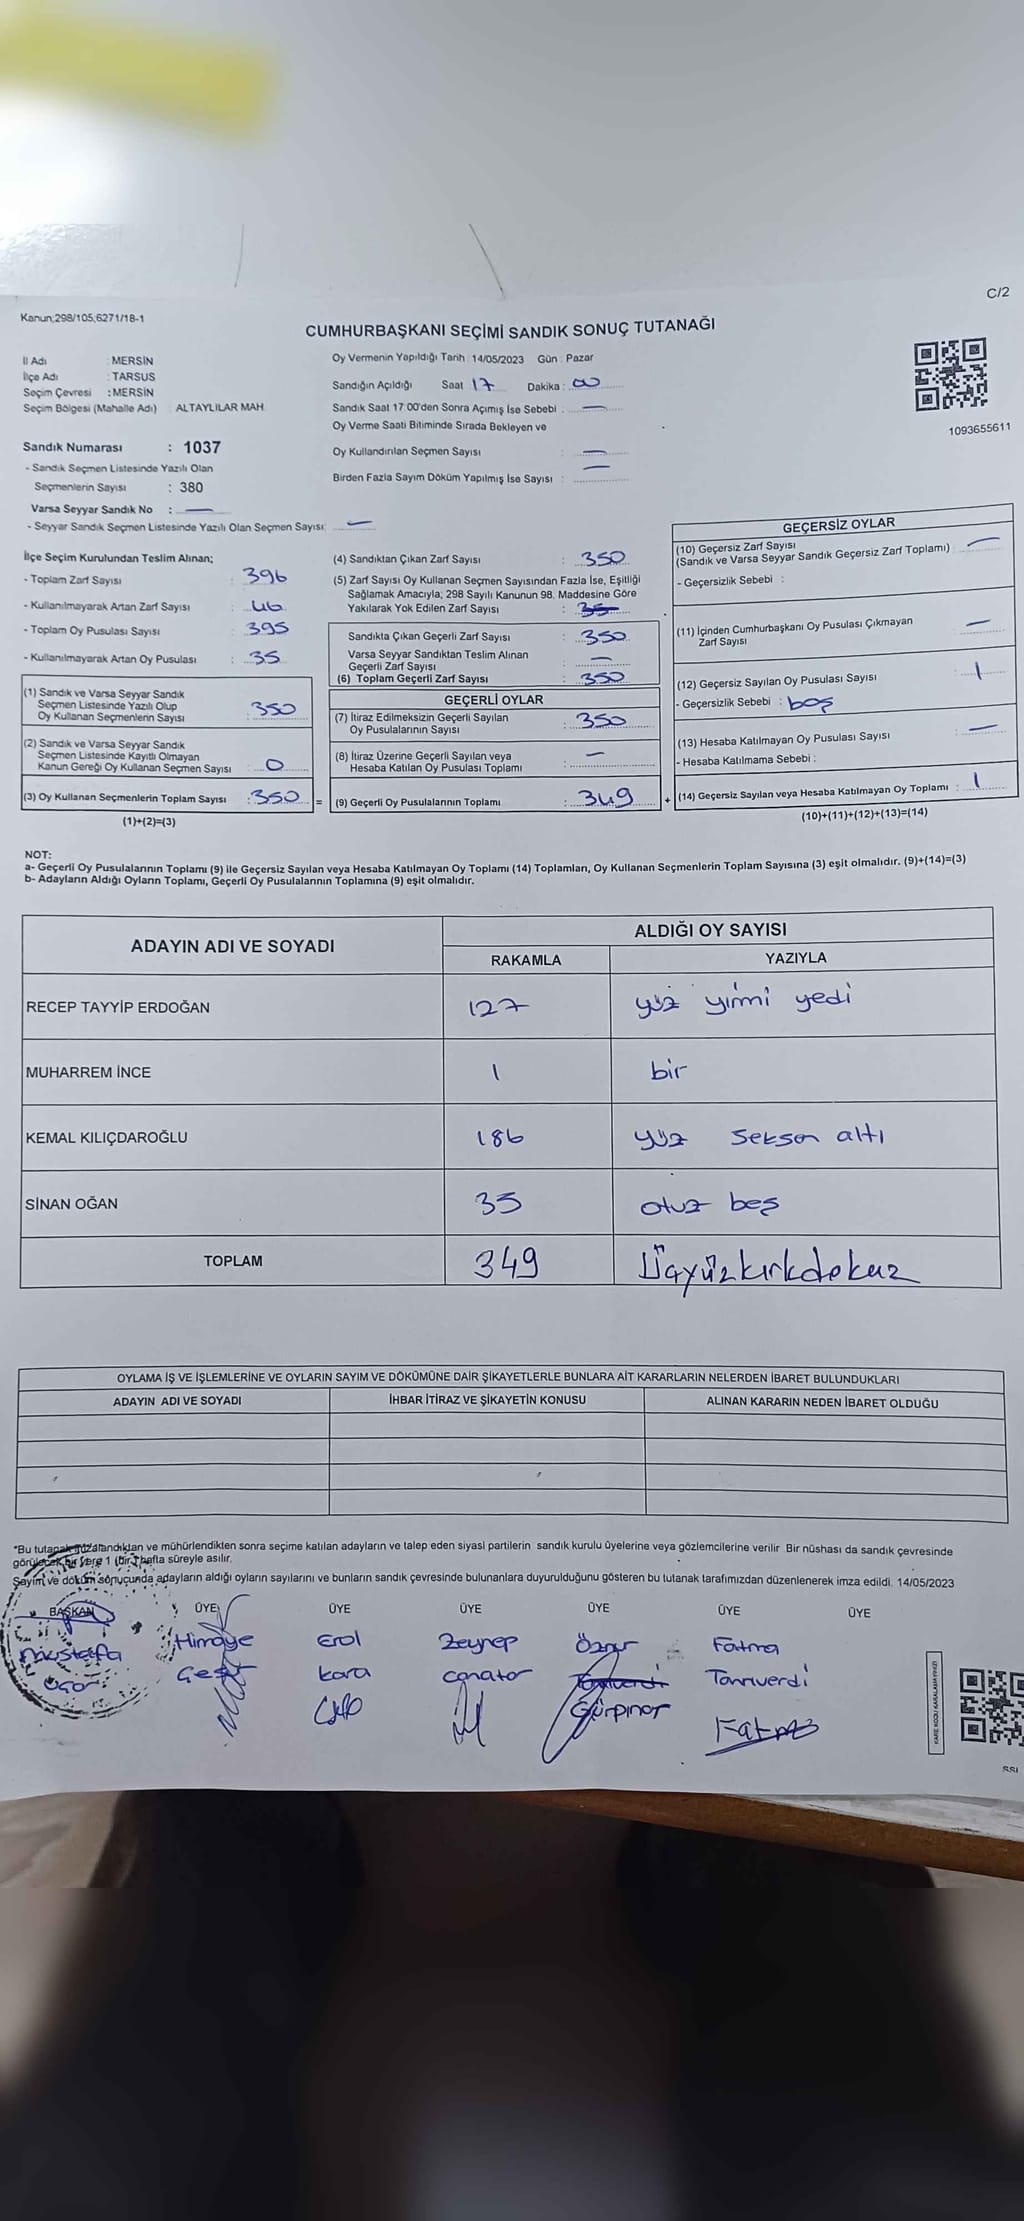 C/2
Kanun;298/105,6271/18-1
CUMHURBAŞKANI SEÇİMİ SANDIK SONUÇ TUTANAĞI
İl Adı : MERSİN
İlçe Adı : TARSUS
Seçim Çevresi : MERSİN
Seçim Bölgesi (Mahalle Adı) : ALTAYLILAR MAH.
Sandık Numarası : 1037
- Sandık Seçmen Listesinde Yazılı Olan
Seçmenlerin Sayısı : 380
Varsa Seyyar Sandık No : —
- Seyyar Sandık Seçmen Listesinde Yazılı Olan Seçmen Sayısı: —
Oy Vermenin Yapıldığı Tarih : 14/05/2023 Gün : Pazar
Sandığın Açıldığı Saat 17 Dakika : 00
Sandık Saat 17:00'den Sonra Açımış İse Sebebi : —
Oy Verme Saati Bitiminde Sırada Bekleyen ve
Oy Kullandırılan Seçmen Sayısı : —
Birden Fazla Sayım Döküm Yapılmış İse Sayısı : —
1093655611
İlçe Seçim Kurulundan Teslim Alınan;
- Toplam Zarf Sayısı : 396
- Kullanılmayarak Artan Zarf Sayısı : 46
- Toplam Oy Pusulası Sayısı : 395
- Kullanılmayarak Artan Oy Pusulası : 35
(1) Sandık ve Varsa Seyyar Sandık
Seçmen Listesinde Yazılı Olup
Oy Kullanan Seçmenlerin Sayısı : 350
(2) Sandık ve Varsa Seyyar Sandık
Seçmen Listesinde Kayıtlı Olmayan
Kanun Gereği Oy Kullanan Seçmen Sayısı : 0
(3) Oy Kullanan Seçmenlerin Toplam Sayısı : 350 =
(1)+(2)=(3)
(4) Sandıktan Çıkan Zarf Sayısı : 350
(5) Zarf Sayısı Oy Kullanan Seçmen Sayısından Fazla İse, Eşitliği
Sağlamak Amacıyla; 298 Sayılı Kanunun 98. Maddesine Göre
Yakılarak Yok Edilen Zarf Sayısı : 35
Sandıkta Çıkan Geçerli Zarf Sayısı : 350
Varsa Seyyar Sandıktan Teslim Alınan
Geçerli Zarf Sayısı : —
(6) Toplam Geçerli Zarf Sayısı : 350
GEÇERLİ OYLAR
(7) İtiraz Edilmeksizin Geçerli Sayılan
Oy Pusulalarının Sayısı : 350
(8) İtiraz Üzerine Geçerli Sayılan veya
Hesaba Katılan Oy Pusulası Toplamı : —
(9) Geçerli Oy Pusulalarının Toplamı : 349 +
GEÇERSİZ OYLAR
(10) Geçersiz Zarf Sayısı
(Sandık ve Varsa Seyyar Sandık Geçersiz Zarf Toplamı) : —
- Geçersizlik Sebebi :
(11) İçinden Cumhurbaşkanı Oy Pusulası Çıkmayan
Zarf Sayısı : —
(12) Geçersiz Sayılan Oy Pusulası Sayısı : 1
- Geçersizlik Sebebi : boş
(13) Hesaba Katılmayan Oy Pusulası Sayısı : —
- Hesaba Katılmama Sebebi :
(14) Geçersiz Sayılan veya Hesaba Katılmayan Oy Toplamı : 1
(10)+(11)+(12)+(13)=(14)
NOT:
a- Geçerli Oy Pusulalarının Toplamı (9) ile Geçersiz Sayılan veya Hesaba Katılmayan Oy Toplamı (14) Toplamları, Oy Kullanan Seçmenlerin Toplam Sayısına (3) eşit olmalıdır. (9)+(14)=(3)
b- Adayların Aldığı Oyların Toplamı, Geçerli Oy Pusulalarının Toplamına (9) eşit olmalıdır.
ADAYIN ADI VE SOYADI ALDIĞI OY SAYISI
RAKAMLA YAZIYLA
RECEP TAYYİP ERDOĞAN 127 yüz yirmi yedi
MUHARREM İNCE 1 bir
KEMAL KILIÇDAROĞLU 186 yüz seksen altı
SİNAN OĞAN 35 otuz beş
TOPLAM 349 Üçyüzkırkdokuz
OYLAMA İŞ VE İŞLEMLERİNE VE OYLARIN SAYIM VE DÖKÜMÜNE DAİR ŞİKAYETLERLE BUNLARA AİT KARARLARIN NELERDEN İBARET BULUNDUKLARI
ADAYIN ADI VE SOYADI İHBAR İTİRAZ VE ŞİKAYETİN KONUSU ALINAN KARARIN NEDEN İBARET OLDUĞU
*Bu tutanak imzalandıktan ve mühürlendikten sonra seçime katılan adayların ve talep eden siyasi partilerin sandık kurulu üyelerine veya gözlemcilerine verilir. Bir nüshası da sandık çevresinde
görülecek bir yere 1 (bir) hafta süreyle asılır.
Sayım ve döküm sonucunda adayların aldığı oyların sayılarını ve bunların sandık çevresinde bulunanlara duyurulduğunu gösteren bu tutanak tarafımızdan düzenlenerek imza edildi. 14/05/2023
BAŞKAN ÜYE ÜYE ÜYE ÜYE ÜYE ÜYE
Mustafa Himaye Erol Zeynep Özgür Fatma
kara Tanrıverdi
Gürpınar
Fatma
KARE KODU KARALAMAYINIZ!